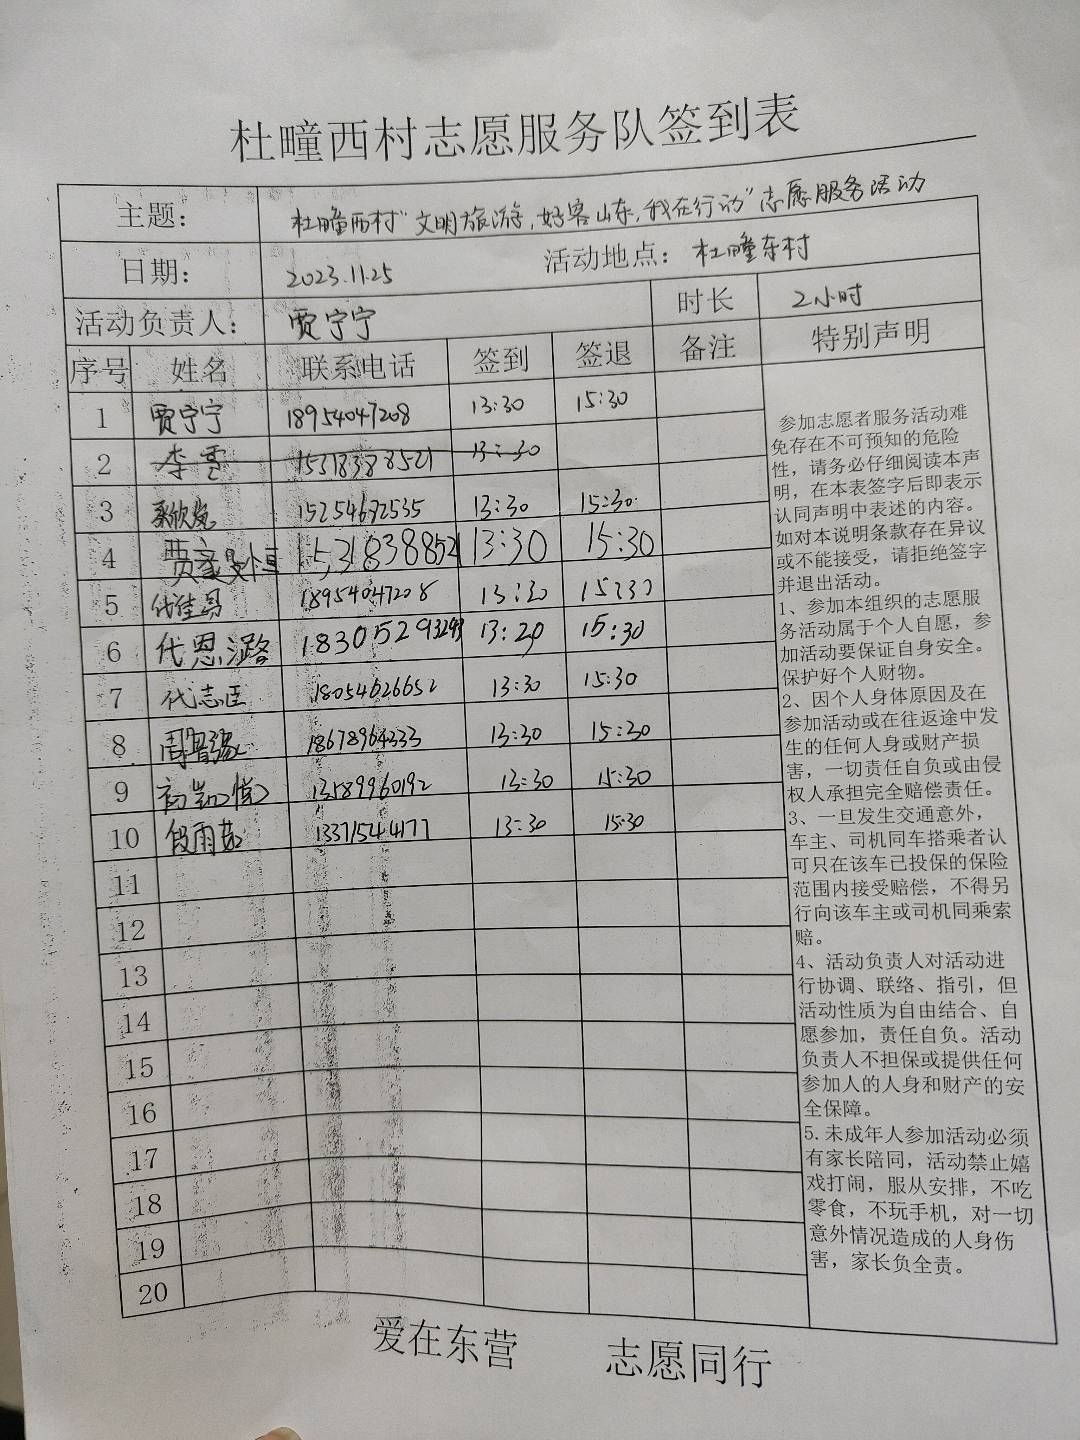 杜疃西村志愿服务队签到表
主题： 杜疃西村“文明旅游，好客山东，我在行动”志愿服务活动
日期： 2023.11.25 活动地点： 杜疃东村
活动负责人： 贾宁宁 时长 2小时
序号 姓名 联系电话 签到 签退 备注 特别声明
1 贾宁宁 18954047208 13:30 15:30
2 李雪 15318388521 13:30
3 15254672535 13:30 15:30
4 1531838852 13:30 15:30
5 代佳 18954047208 13:30 15:30
6 代恩潞 13:20 15:30
7 代志匡 18054626652 13:30 15:30
8 18678964333 13:30 15:30
9 13589960192 13:30 15:30
10 段雨茹 13371544177 13:30 15:30
11
12
13
14
15
16
17
18
19
20
参加志愿者服务活动难
免存在不可预知的危险
性，请务必仔细阅读本声
明，在本表签字后即表示
认同声明中表述的内容。
如对本说明条款存在异议
或不能接受，请拒绝签字
并退出活动。
1、参加本组织的志愿服
务活动属于个人自愿，参
加活动要保证自身安全。
保护好个人财物。
2、因个人身体原因及在
参加活动或在往返途中发
生的任何人身或财产损
害，一切责任自负或由侵
权人承担完全赔偿责任。
3、一旦发生交通意外，
车主、司机同车搭乘者认
可只在该车已投保的保险
范围内接受赔偿，不得另
行向该车主或司机同乘索
赔。
4、活动负责人对活动进
行协调、联络、指引，但
活动性质为自由结合、自
愿参加，责任自负。活动
负责人不担保或提供任何
参加人的人身和财产的安
全保障。
5.未成年人参加活动必须
有家长陪同，活动禁止嬉
戏打闹，服从安排，不吃
零食，不玩手机，对一切
意外情况造成的人身伤
害，家长负全责。
爱在东营 志愿同行